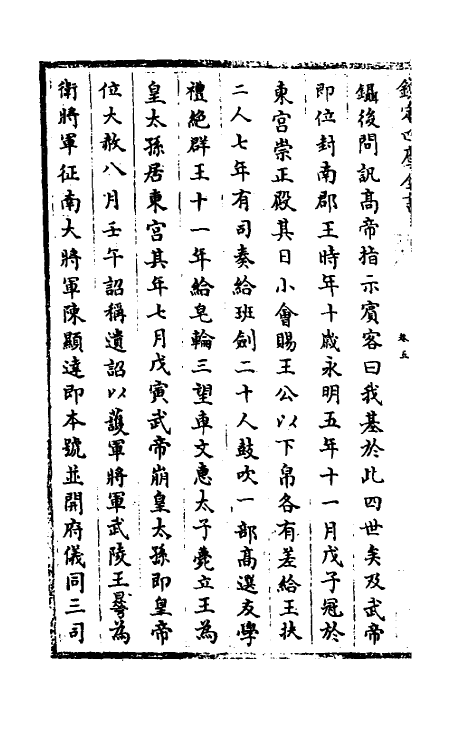 欽定四庫全書
卷五
鑷後問訊高帝指示賓客曰我基於此四世矣及武帝
即位封南郡王時年十歲永明五年十一月戊子冠於
東宫崇正殿其日小會賜王公以下帛各有差給王扶
二人七年有司奏給班劍二十人鼓吹一部高選友學
禮絶群王十一年給皂輪三望車文惠太子薨立王為
皇太孫居東宫其年七月戊寅武帝崩皇太孫即皇帝
位大赦八月壬午詔稱遺詔以護軍將軍武陵王曅為
衛將軍征南大將軍陳顯達即本號並開府儀同三司